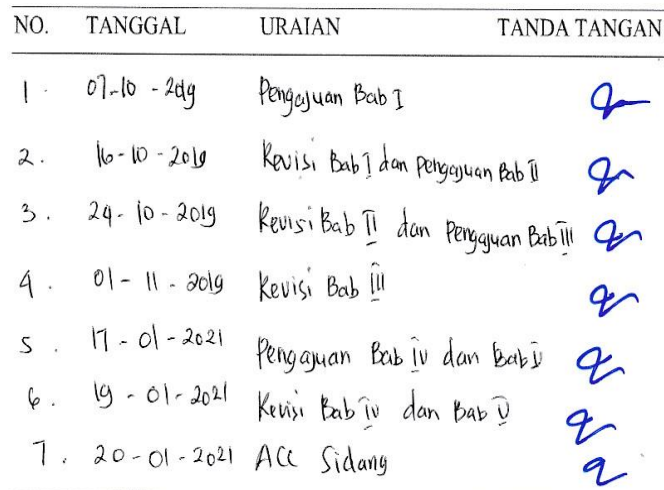 NO. TANGGAL URAIAN TANDA TANGAN
1. 07-10-2019 Pengajuan Bab I
2. 16-10-2019 Revisi Bab I dan pengajuan Bab II
3. 24-10-2019 Revisi Bab II dan Pengajuan Bab III
4. 01-11-2019 Revisi Bab III
5. 17-01-2021 Pengajuan Bab IV dan Bab V
6. 19-01-2021 Revisi Bab IV dan Bab V
7. 20-01-2021 ACC Sidang